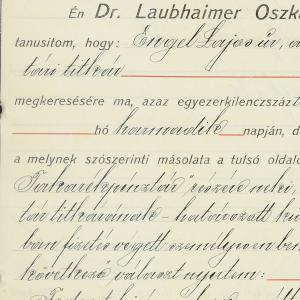 Én Dr. Laubhaimer Oszká
tanusitom, hogy: Engel Lajos úr, a
tári titkár
megkeresésére ma, azaz egyezerkilenczszázt
hó harmadik napján, d
a melynek szószerinti másolata a tulsó oldalo
Takarékpénztár" részére neki
tár titkárának – határozott kü
ban fizetés végett személyesen be
következő választ nyertem: